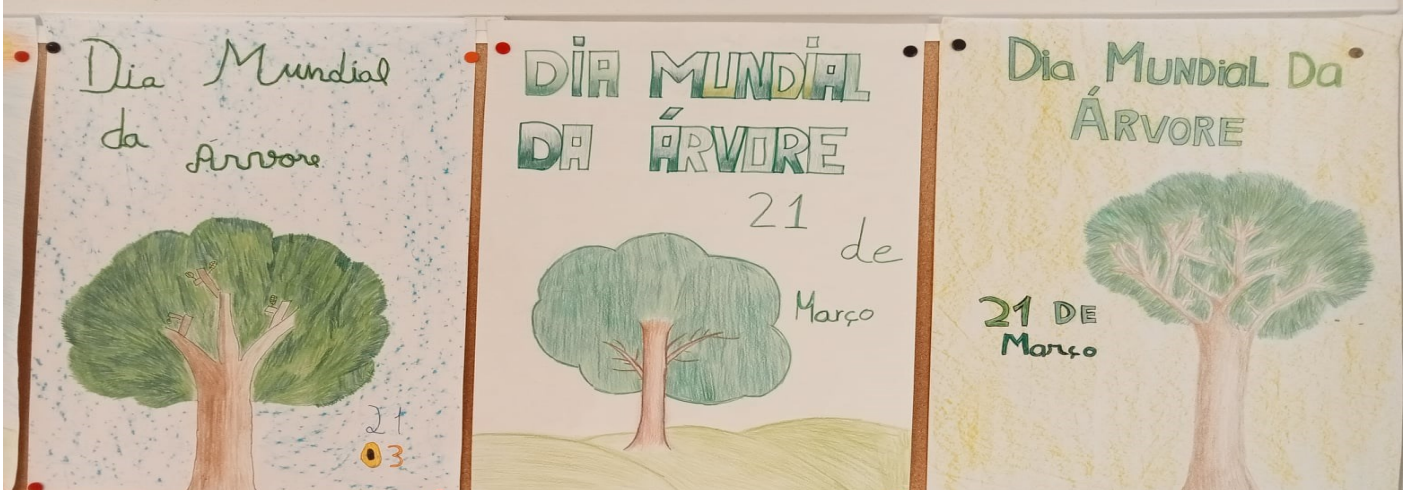 Dia Mundial
da
Árvore
21
03
DiA MUNDiAL
DA ÁRVORE
21
de
Março
Dia MUNDiaL Da
ÁRVORE
21 DE
Março